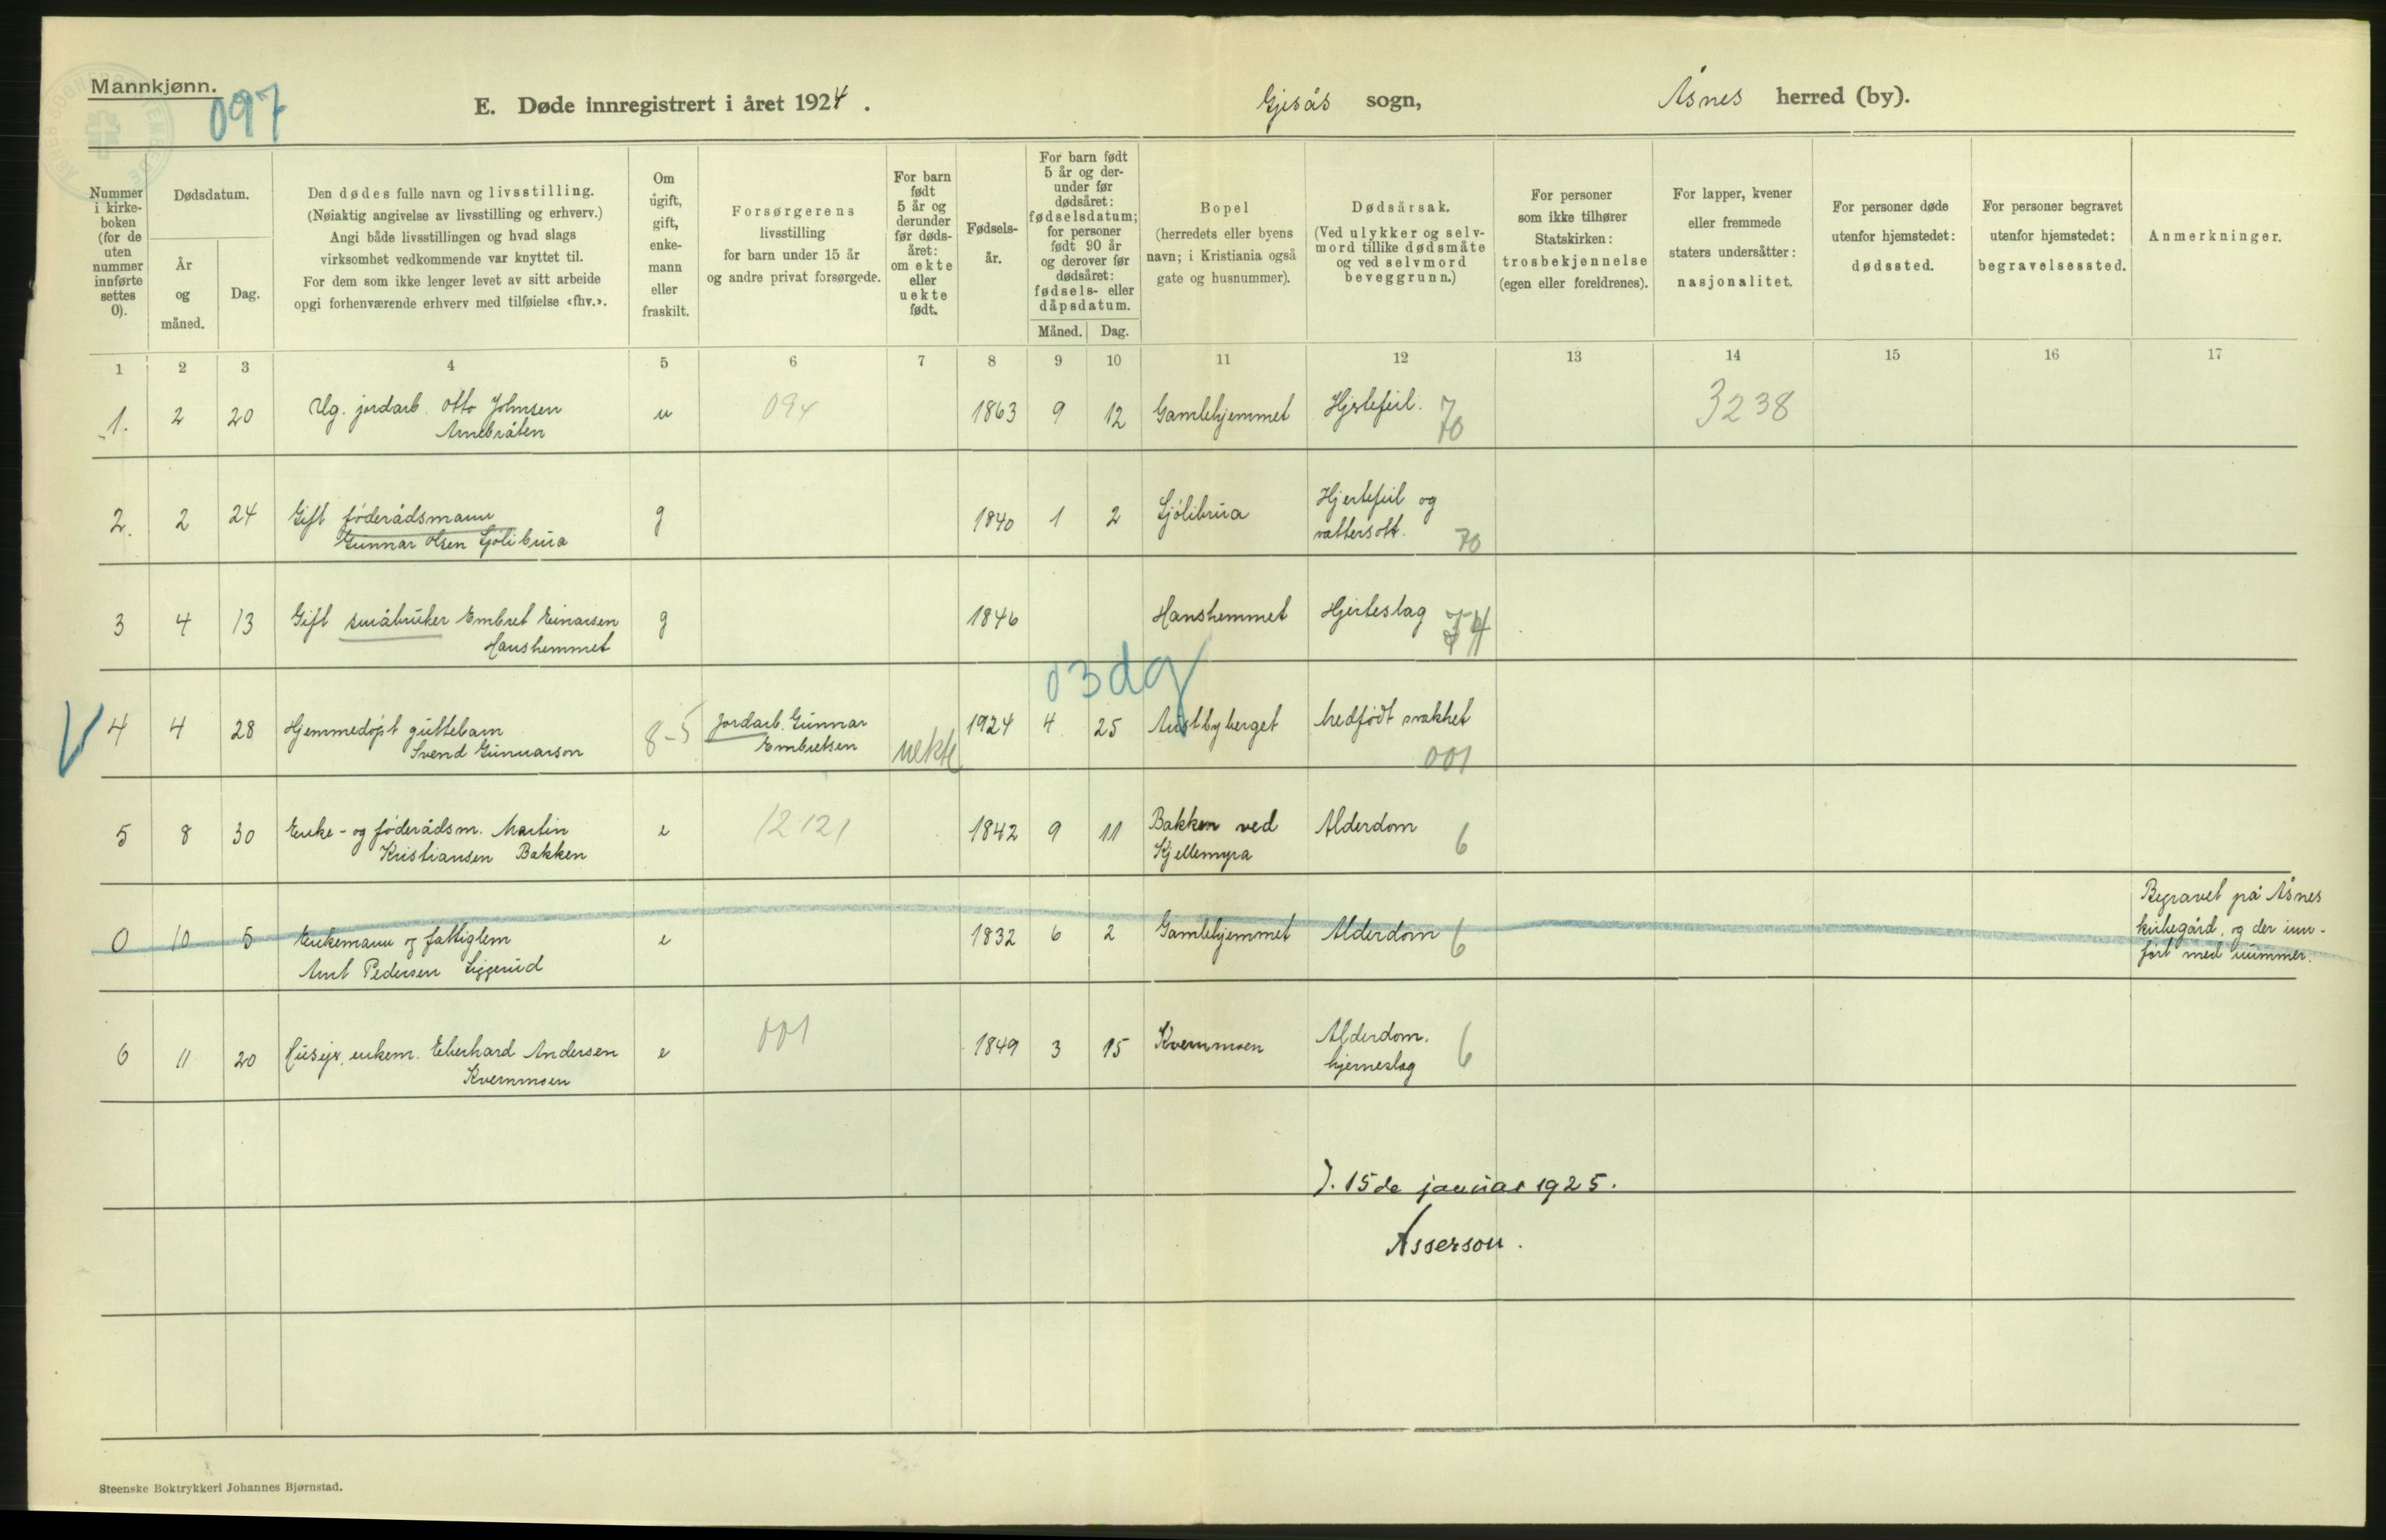 Mannkjønn.
097
E. Døde innregistrert i året 1924.
Gjesås sogn,
Åsnes herred (by).
Nummer
i kirke-
boken
(for de
uten
nummer
innførte
settes
0).
Dødsdatum.
År
og
måned.
Dag.
Den dødes fulle navn og livsstilling.
(Nøiaktig angivelse av livsstilling og erhverv.)
Angi både livsstillingen og hvad slags
virksomhet vedkommende var knyttet til.
For dem som ikke lenger levet av sitt arbeide
opgi forhenværende erhverv med tilføielse «fhv.».
Om
ugift,
gift,
enke-
mann
eller
fraskilt.
Forsørgerens
livsstilling
for barn under 15 år
og andre privat forsørgede.
For barn
født
5 år og
derunder
før døds-
året:
om ekte
eller
uekte
født.
Fødsels-
år.
For barn født
5 år og der-
under før
dødsåret:
fødselsdatum;
for personer
født 90 år
og derover før
dødsåret:
fødsels- eller
dåpsdatum.
Måned.
Dag.
Bopel
(herredets eller byens
navn; i Kristiania også
gate og husnummer).
Dødsårsak.
(Ved ulykker og selv-
mord tillike dødsmåte
og ved selvmord
beveggrunn.)
For personer
som ikke tilhører
Statskirken:
trosbekjennelse
(egen eller foreldrenes).
For lapper, kvener
eller fremmede
staters undersåtter:
nasjonalitet.
For personer døde
utenfor hjemstedet:
dødssted.
For personer begravet
utenfor hjemstedet:
begravelsessted.
Anmerkninger.
1 2 3 4 5 6 7 8 9 10 11 12 13 14 15 16 17
1. 2 20 Ug. jordarb. Otto Johnsen u 094 1863 9 12 Gamlehjemmet Hjertefeil. 70 3238
Arnebråten
2. 2 24 Gift føderådsmann g 1840 1 2 Sjølibrua Hjertefeil og
Gunnar Olsen Sjølibrua vattersott. 70
3 4 13 Gift småbruker Embret Einarsen g 1846 Hanshemmet Hjerteslag 74
Hanshemmet
03 dg
4 4 28 Hjemmedøpt guttebarn 8-5 Jordarb. Gunnar uekte 1924 4 25 Austbyberget Medfødt svakhet
Svend Gunnarson Embretsen 001
5 8 30 Enke- og føderådsm. Martin e 12 121 1842 9 11 Bakken ved Alderdom 6
Kristiansen Bakken Kjellemyra
0 10 5 Enkemann og fattiglem e 1832 6 2 Gamlehjemmet Alderdom 6
Arnt Pedersen Liggerud
Begravet på Åsnes
kirkegård, og der inn-
ført med nummer.
6 11 20 Huseier, enkem. Eberhard Andersen e 001 1849 3 15 Kvernmoen Alderdom, 6
Kvernmoen hjerneslag
15de januar 1925.
Asserson.
Steenske Boktrykkeri Johannes Bjørnstad.